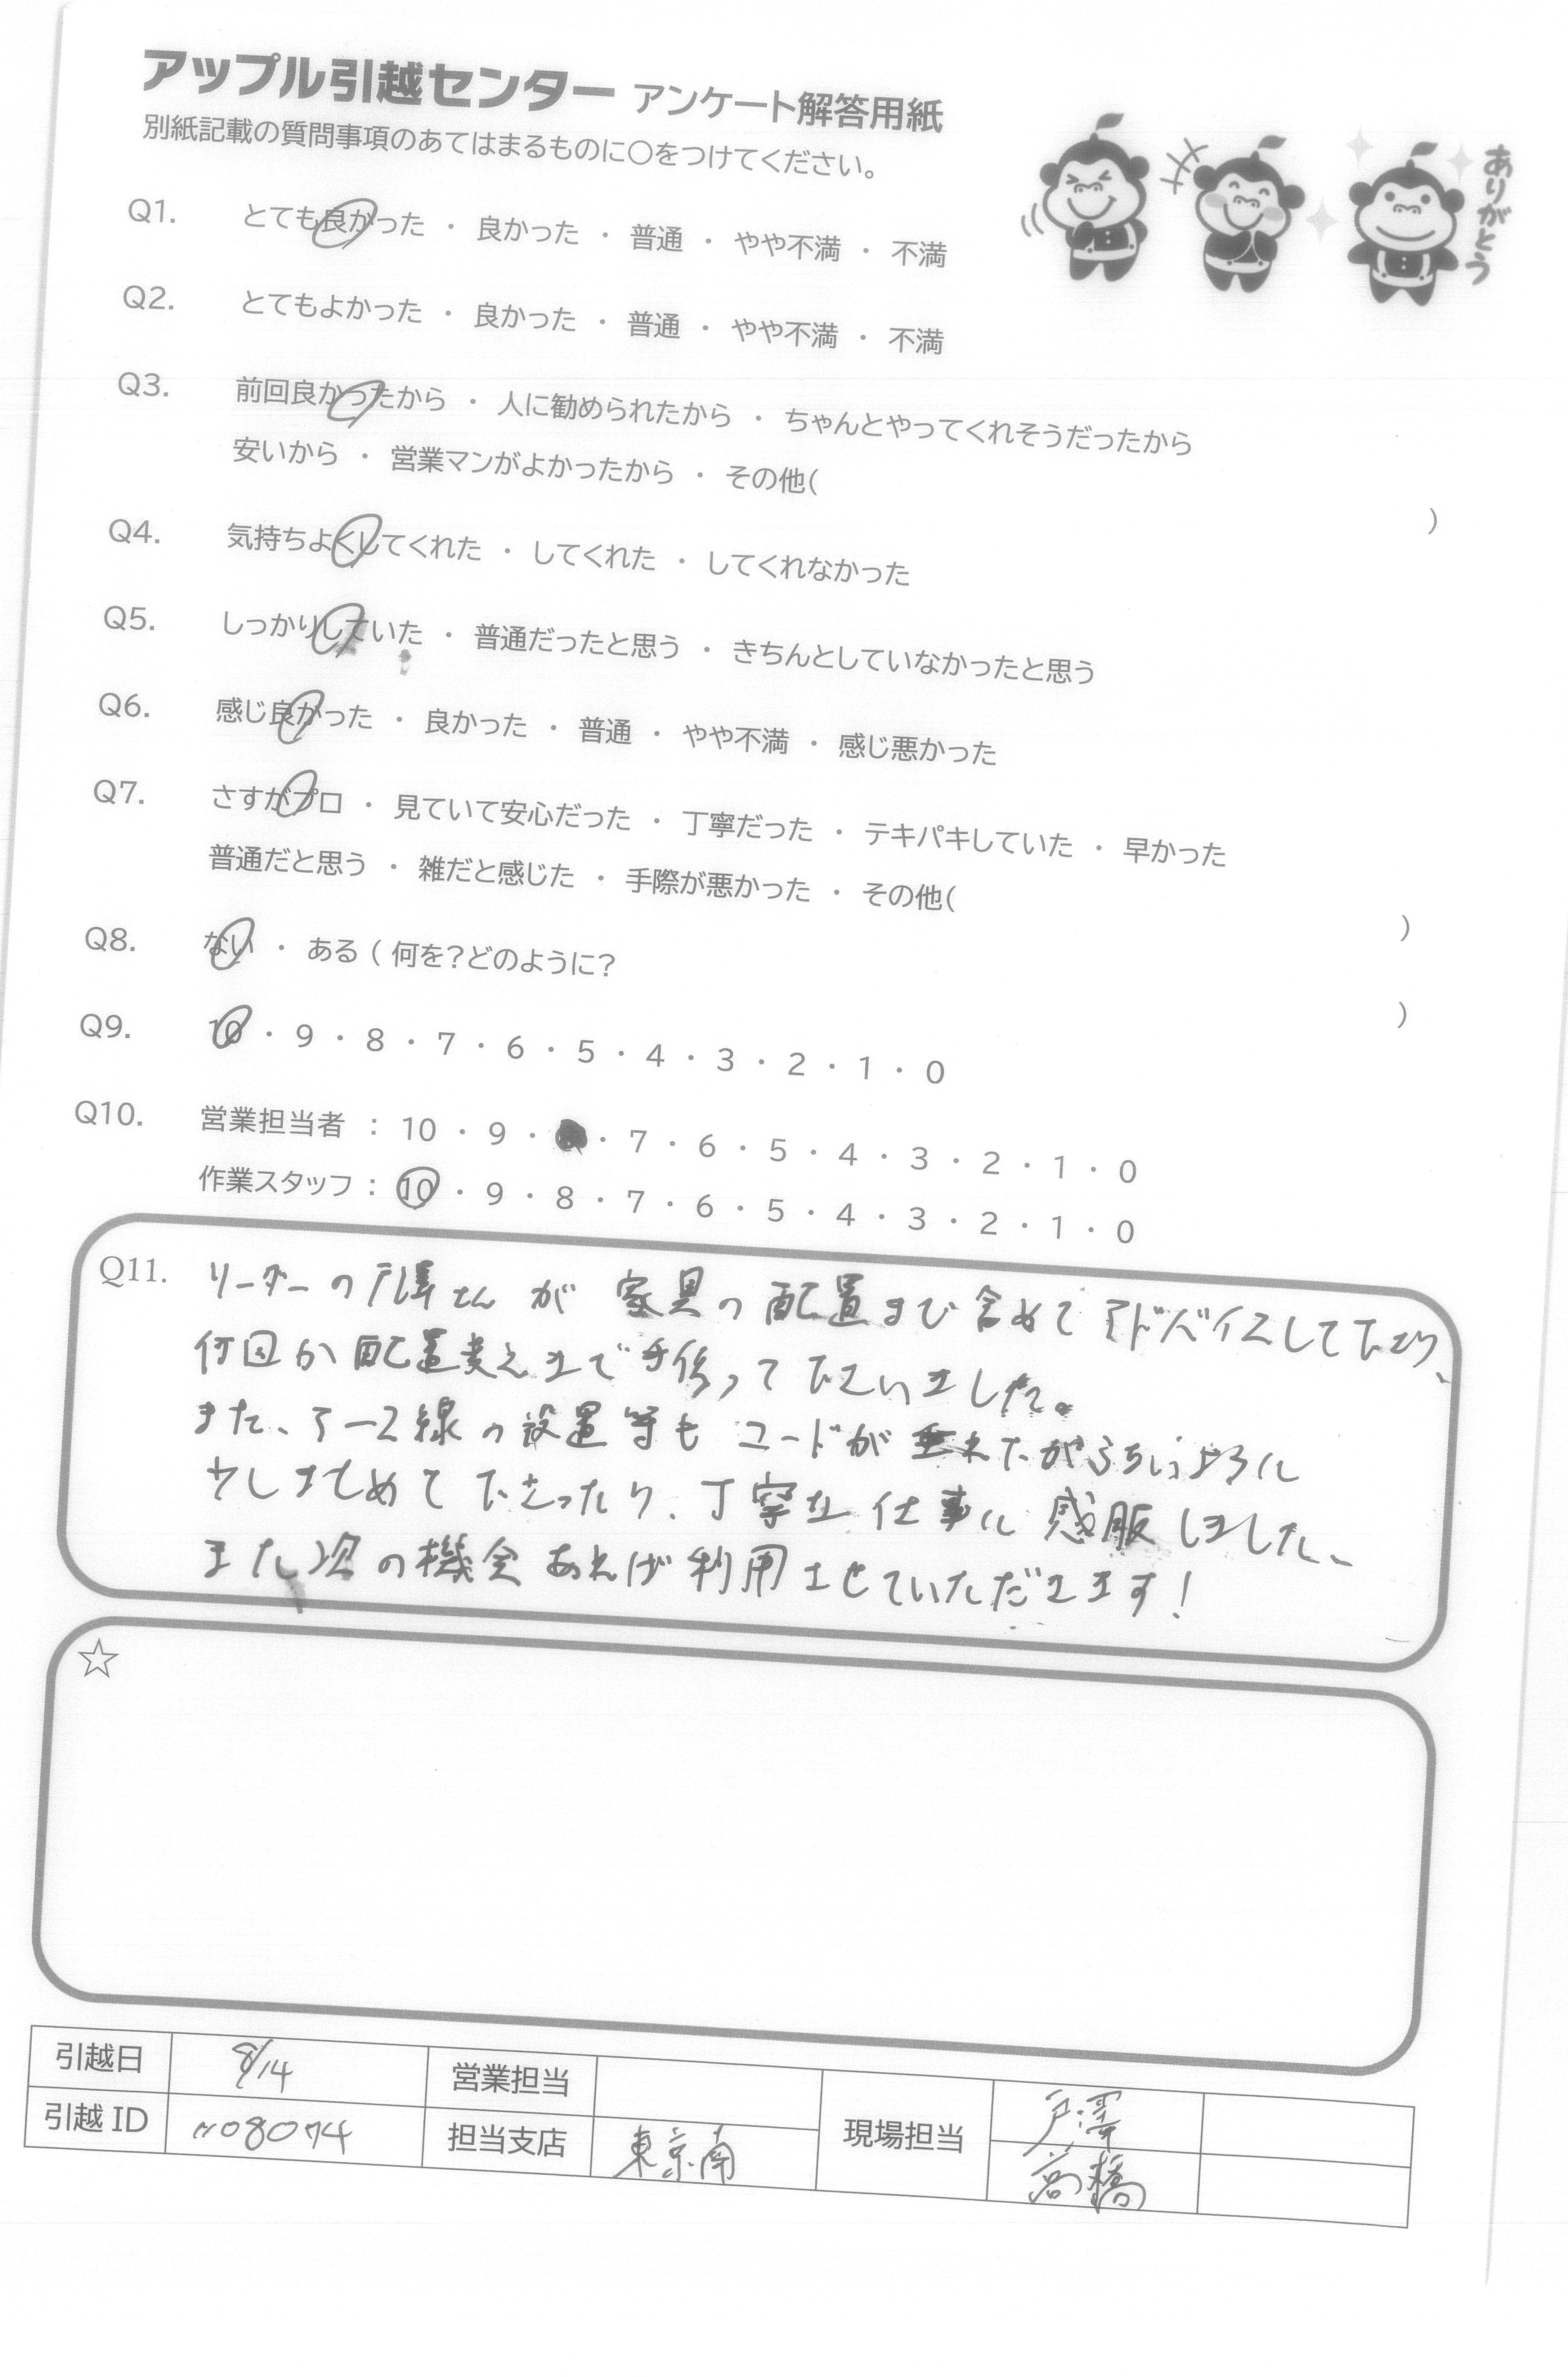 アップル引越センター アンケート解答用紙
別紙記載の質問事項のあてはまるものに○をつけてください。
ありがとう
Q1. とても良かった ・ 良かった ・ 普通 ・ やや不満 ・ 不満
Q2. とてもよかった ・ 良かった ・ 普通 ・ やや不満 ・ 不満
Q3. 前回良かったから ・ 人に勧められたから ・ ちゃんとやってくれそうだったから
安いから ・ 営業マンがよかったから ・ その他( )
Q4. 気持ちよくしてくれた ・ してくれた ・ してくれなかった
Q5. しっかりしていた ・ 普通だったと思う ・ きちんとしていなかったと思う
Q6. 感じ良かった ・ 良かった ・ 普通 ・ やや不満 ・ 感じ悪かった
Q7. さすがプロ ・ 見ていて安心だった ・ 丁寧だった ・ テキパキしていた ・ 早かった
普通だと思う ・ 雑だと感じた ・ 手際が悪かった ・ その他( )
Q8. ない ・ ある ( 何を?どのように? )
Q9. 10 ・ 9 ・ 8 ・ 7 ・ 6 ・ 5 ・ 4 ・ 3 ・ 2 ・ 1 ・ 0
Q10. 営業担当者 : 10 ・ 9 ・ ・ 7 ・ 6 ・ 5 ・ 4 ・ 3 ・ 2 ・ 1 ・ 0
作業スタッフ : 10 ・ 9 ・ 8 ・ 7 ・ 6 ・ 5 ・ 4 ・ 3 ・ 2 ・ 1 ・ 0
Q11. リーダーの戸澤さんが 家具の配置まで含めてアドバイスして下さり、
何回か配置変えまで手伝って下さいました。
また、アース線の設置等も コードが垂れ下がらないように
少しまとめて下さったり、丁寧な仕事に感服しました。
また次の機会あれば利用させていただきます!
☆
引越日 8/14 営業担当 現場担当 戸澤
引越ID 108074 担当支店 東京南 高橋